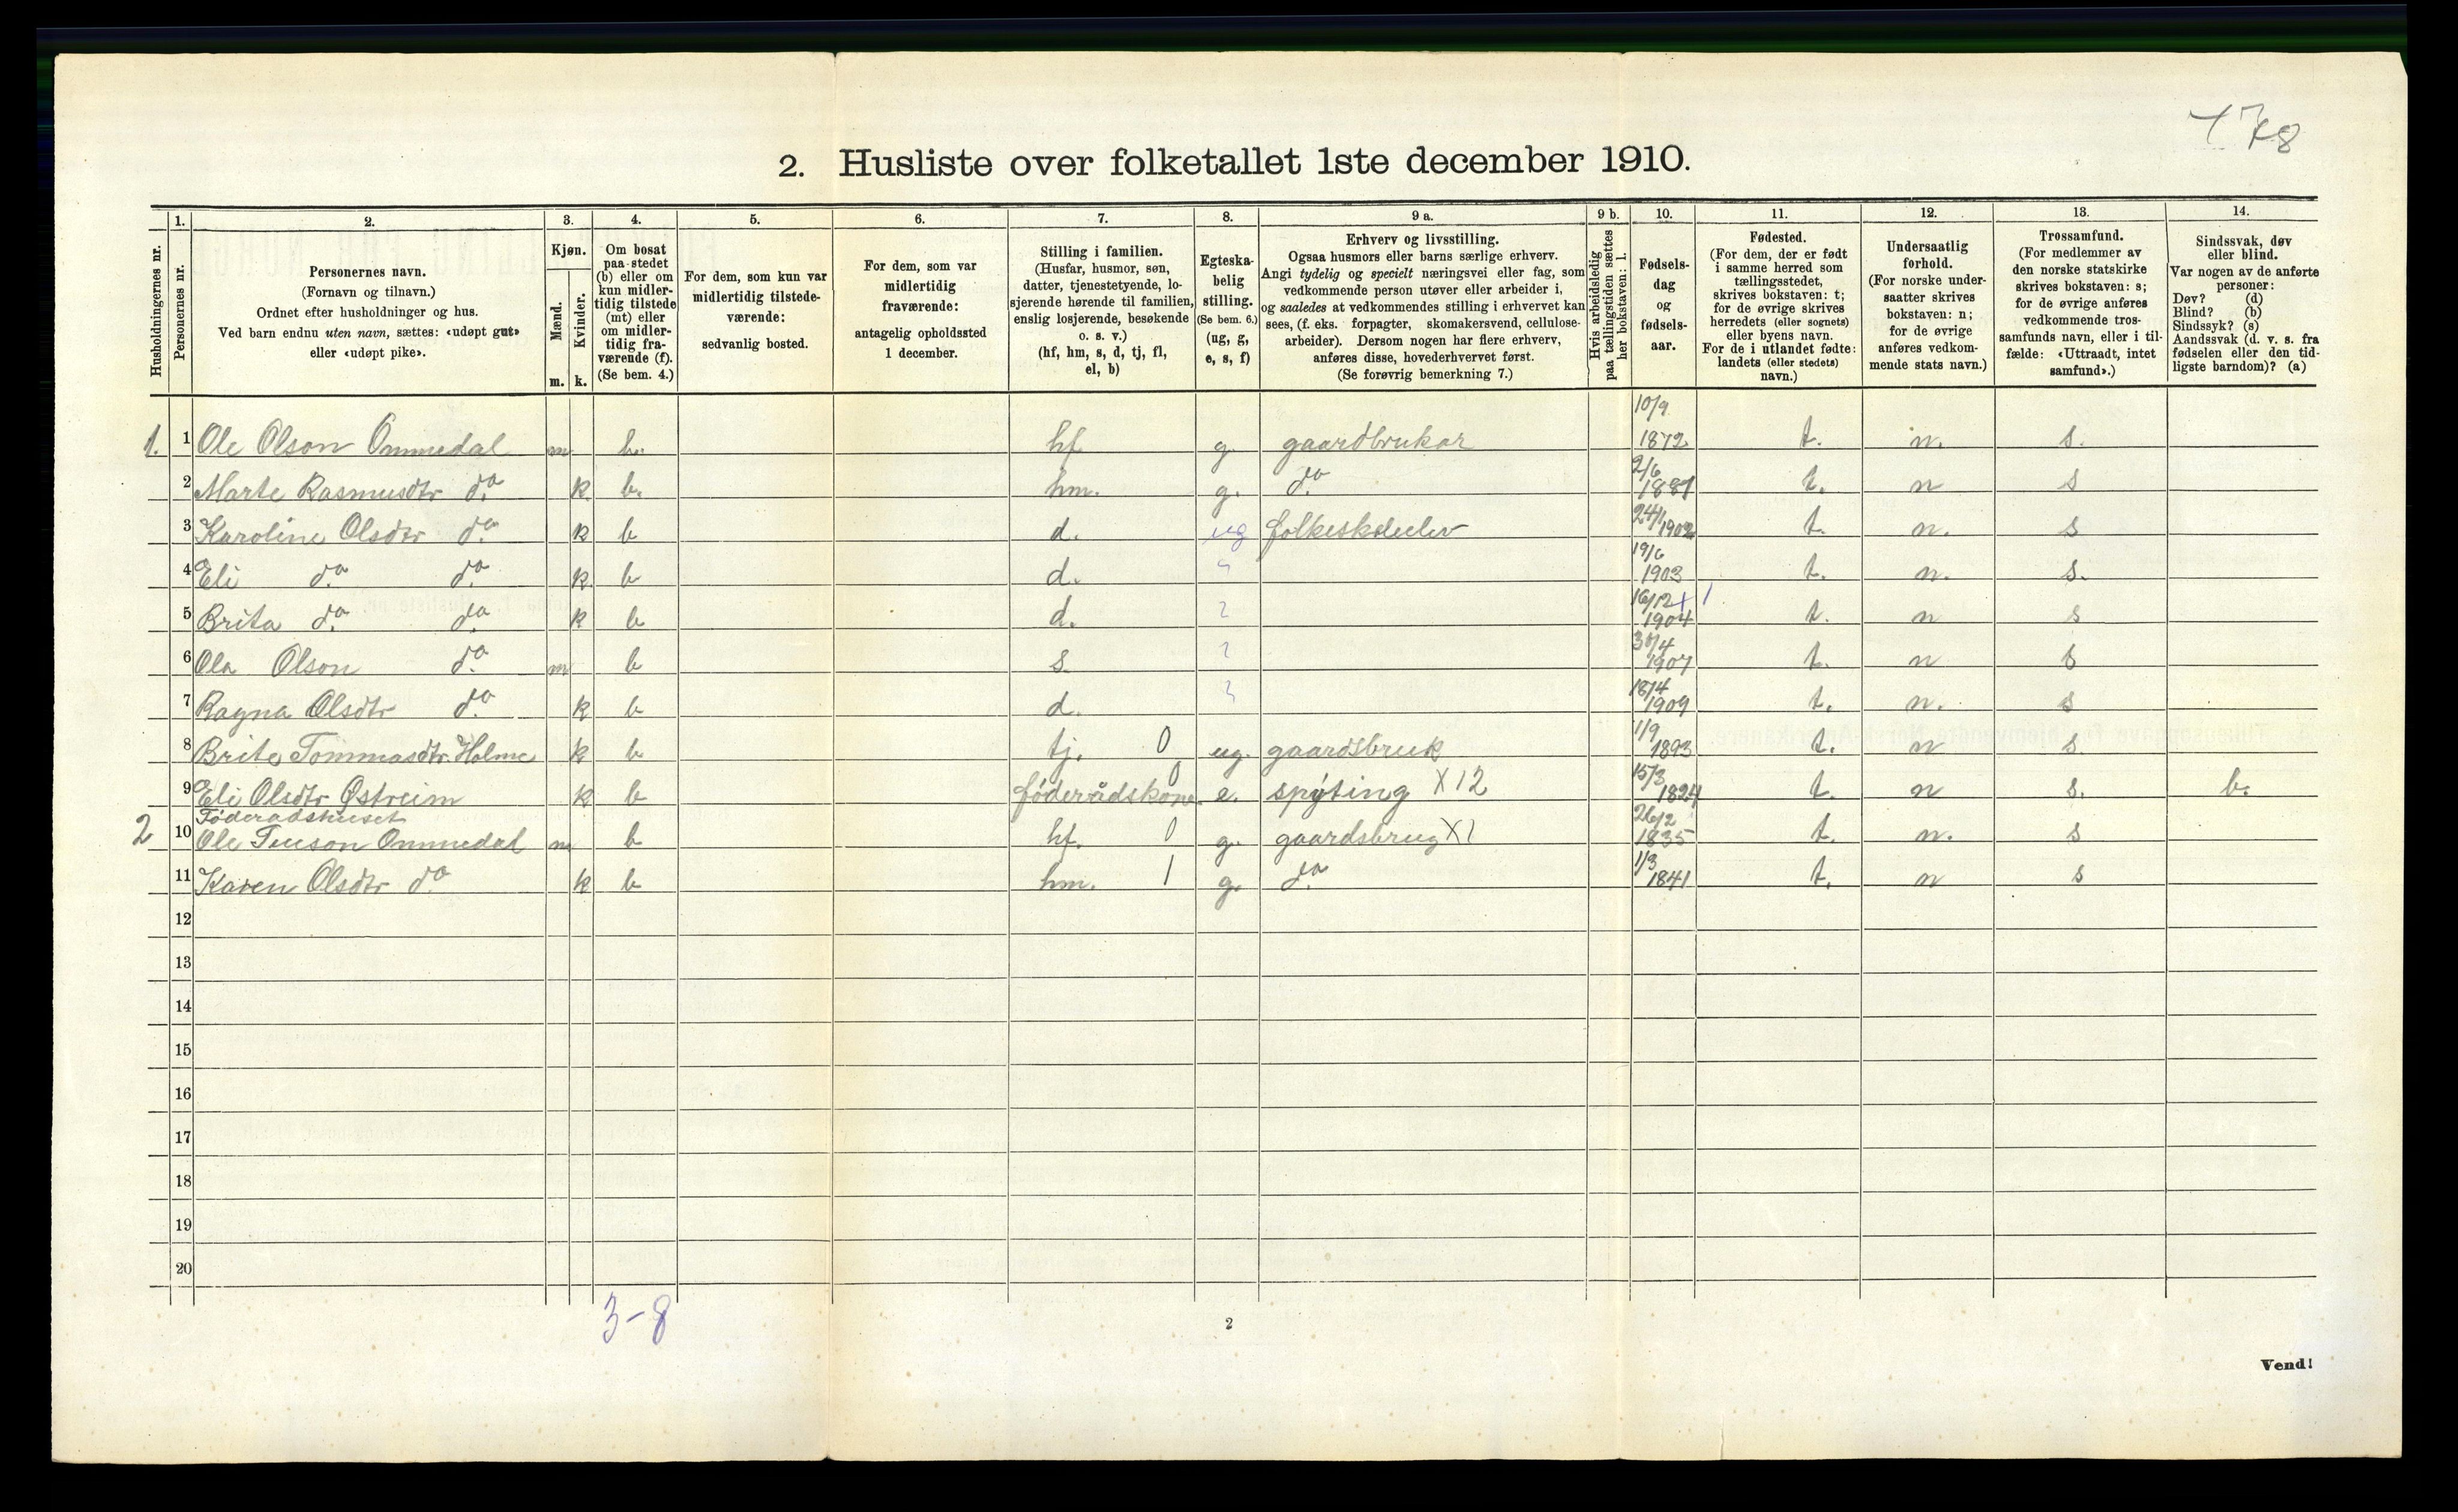 178
2. Husliste over folketallet 1ste december 1910.
Husholdningernes nr.
1.
Personernes nr.
2.
Personernes navn.
(Fornavn og tilnavn.)
Ordnet efter husholdninger og hus.
Ved barn endnu uten navn, sættes: «udøpt gut»
eller «udøpt pike».
3.
Kjøn.
Mænd.
m.
Kvinder.
k.
4.
Om bosat
paa stedet
(b) eller om
kun midler-
tidig tilstede
(mt) eller
om midler-
tidig fra-
værende (f).
(Se bem. 4.)
5.
For dem, som kun var
midlertidig tilstede-
værende:
sedvanlig bosted.
6.
For dem, som var
midlertidig
fraværende:
antagelig opholdssted
1 december.
7.
Stilling i familien.
(Husfar, husmor, søn,
datter, tjenestetyende, lo-
sjerende hørende til familien,
enslig losjerende, besøkende
o. s. v.)
(hf, hm, s, d, tj, fl,
el, b)
8.
Egteska-
belig
stilling.
(Se bem. 6.)
(ug, g,
e, s, f)
9 a.
Erhverv og livsstilling.
Ogsaa husmors eller barns særlige erhverv.
Angi tydelig og specielt næringsvei eller fag, som
vedkommende person utøver eller arbeider i,
og saaledes at vedkommendes stilling i erhvervet kan
sees, (f. eks. forpagter, skomakersvend, cellulose-
arbeider). Dersom nogen har flere erhverv,
anføres disse, hovederhvervet først.
(Se forøvrig bemerkning 7.)
9 b.
Hvis arbeidsledig
paa tællingstiden sættes
her bokstaven: l.
10.
Fødsels-
dag
og
fødsels-
aar.
11.
Fødested.
(For dem, der er født
i samme herred som
tællingsstedet,
skrives bokstaven: t;
for de øvrige skrives
herredets (eller sognets)
eller byens navn.
For de i utlandet fødte:
landets (eller stedets)
navn.)
12.
Undersaatlig
forhold.
(For norske under-
saatter skrives
bokstaven: n;
for de øvrige
anføres vedkom-
mende stats navn.)
13.
Trossamfund.
(For medlemmer av
den norske statskirke
skrives bokstaven: s;
for de øvrige anføres
vedkommende tros-
samfunds navn, eller i til-
fælde: «Uttraadt, intet
samfund».)
14.
Sindssvak, døv
eller blind.
Var nogen av de anførte
personer:
Døv? (d)
Blind? (b)
Sindssyk? (s)
Aandssvak (d. v. s. fra
fødselen eller den tid-
ligste barndom)? (a)
1. 1 Ole Olson Ommedal m b. hf g. gaardbrukar 10/9 1872 t. n. s.
2 Marte Rasmusdtr do k b. hm. g. do 2/6 1881 t. n s
3 Karoline Olsdtr do k b d. ug folkeskuleelev 24/1 1902 t. n. s
4 Eli do do k b d. " 19/6 1903 t. n. s.
5 Brita do do k b d. " 16/12 1904 t. n s
6 Ola Olson do m b s " 30/4 1907 t. n s
7 Ragna Olsdtr do k b d. " 18/4 1909 t. n. s
8 Brite Tommasdtr. Holme k b tj. 0 ug. gaardsbruk 1/9 1893 t. n s.
9 Eli Olsdtr Østreim k b føderådskone 0 e. spýting X12 15/3 1824 t. n s. b.
Føderadshuset
2 10 Ole Tueson Ommedal m b hf. 0 g. gaardsbrug X1 26/2 1835 t. n. s
11 Karen Olsdtr do k b hm. 1 g. do 1/3 1841 t. n s
12
13
14
15
16
17
18
19
20
3-8
2
Vend!